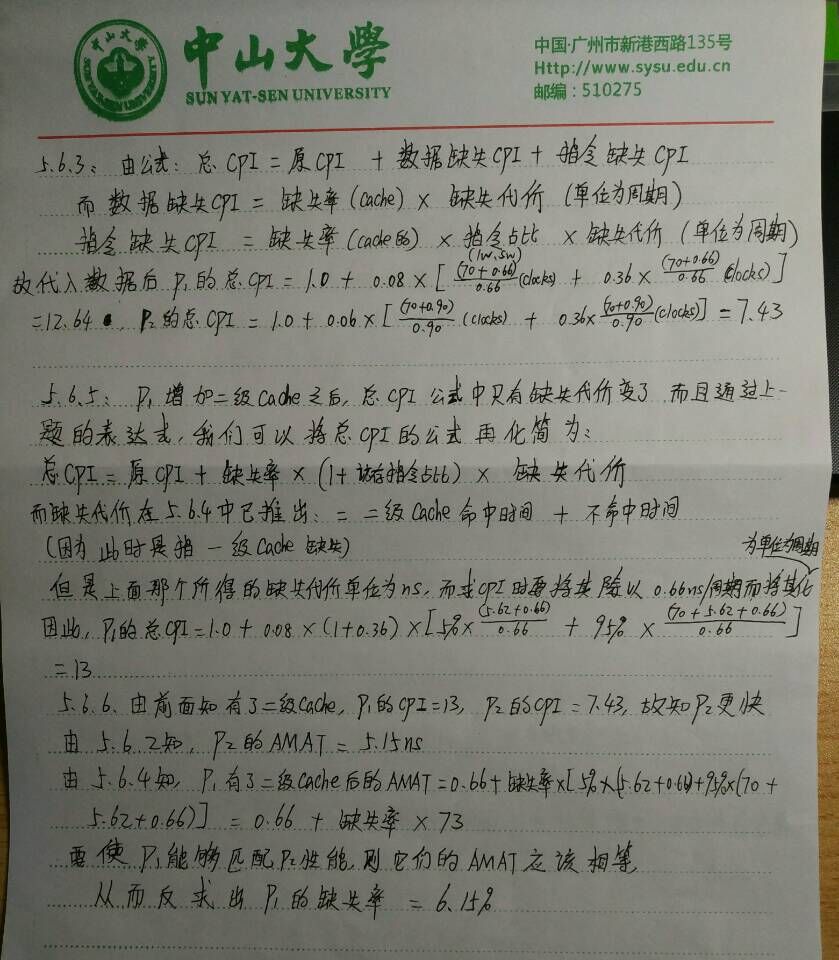 中山大學
SUN YAT-SEN UNIVERSITY
中国·广州市新港西路135号
Http://www.sysu.edu.cn
邮编：510275
5.6.3：由公式：总CPI = 原CPI + 数据缺失CPI + 指令缺失CPI
而数据缺失CPI = 缺失率(cache) × 缺失代价 (单位为周期)
指令缺失CPI = 缺失率(cache的) × 指令占比 × 缺失代价 (单位为周期)
(lw, sw)
故代入数据后 P1的总CPI = 1.0 + 0.08 × [(70+0.66)/0.66 (clocks) + 0.36 × (70+0.66)/0.66 (clocks)]
= 12.64 , P2的总CPI = 1.0 + 0.06 × [(70+0.90)/0.90 (clocks) + 0.36 × (70+0.90)/0.90 (clocks)] = 7.43
5.6.5：P1增加二级Cache之后, 总CPI公式中只有缺失代价变了 而且通过上一
题的表达式, 我们可以将总CPI的公式再化简为：
总CPI = 原CPI + 缺失率 × (1 + 访存指令占比) × 缺失代价
而缺失代价在5.6.4中已推出：= 二级Cache命中时间 + 不命中时间
(因为此时是指一级Cache缺失)
为单位为周期
但是上面那个所得的缺失代价单位为ns, 而求CPI时要将其除以0.66ns/周期而将其化
因此, P1的总CPI = 1.0 + 0.08 × (1+0.36) × [5% × (5.62+0.66)/0.66 + 95% × (70+5.62+0.66)/0.66]
= 13
5.6.6. 由前面知有了二级Cache, P1的CPI=13, P2的CPI = 7.43, 故知P2更快
由5.6.2知, P2的AMAT = 5.15ns
由5.6.4知, P1有了二级Cache后的AMAT = 0.66 + 缺失率×[5%×(5.62+0.66)+95%×(70+
5.62+0.66)] = 0.66 + 缺失率 × 73
要使P1能够匹配P2性能, 则它们的AMAT应该相等,
从而反求出P1的缺失率 = 6.15%